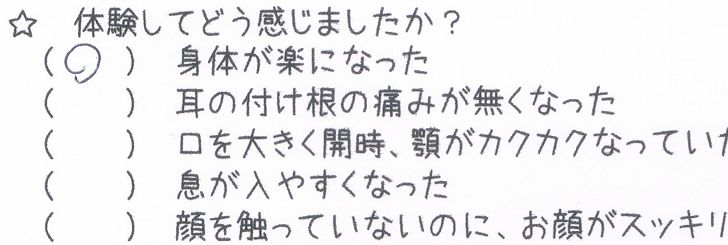 ☆ 体験してどう感じましたか？
(○) 身体が楽になった
( ) 耳の付け根の痛みが無くなった
( ) 口を大きく開時、顎がカクカクなってい
( ) 息が入やすくなった
( ) 顔を触っていないのに、お顔がスッキリ